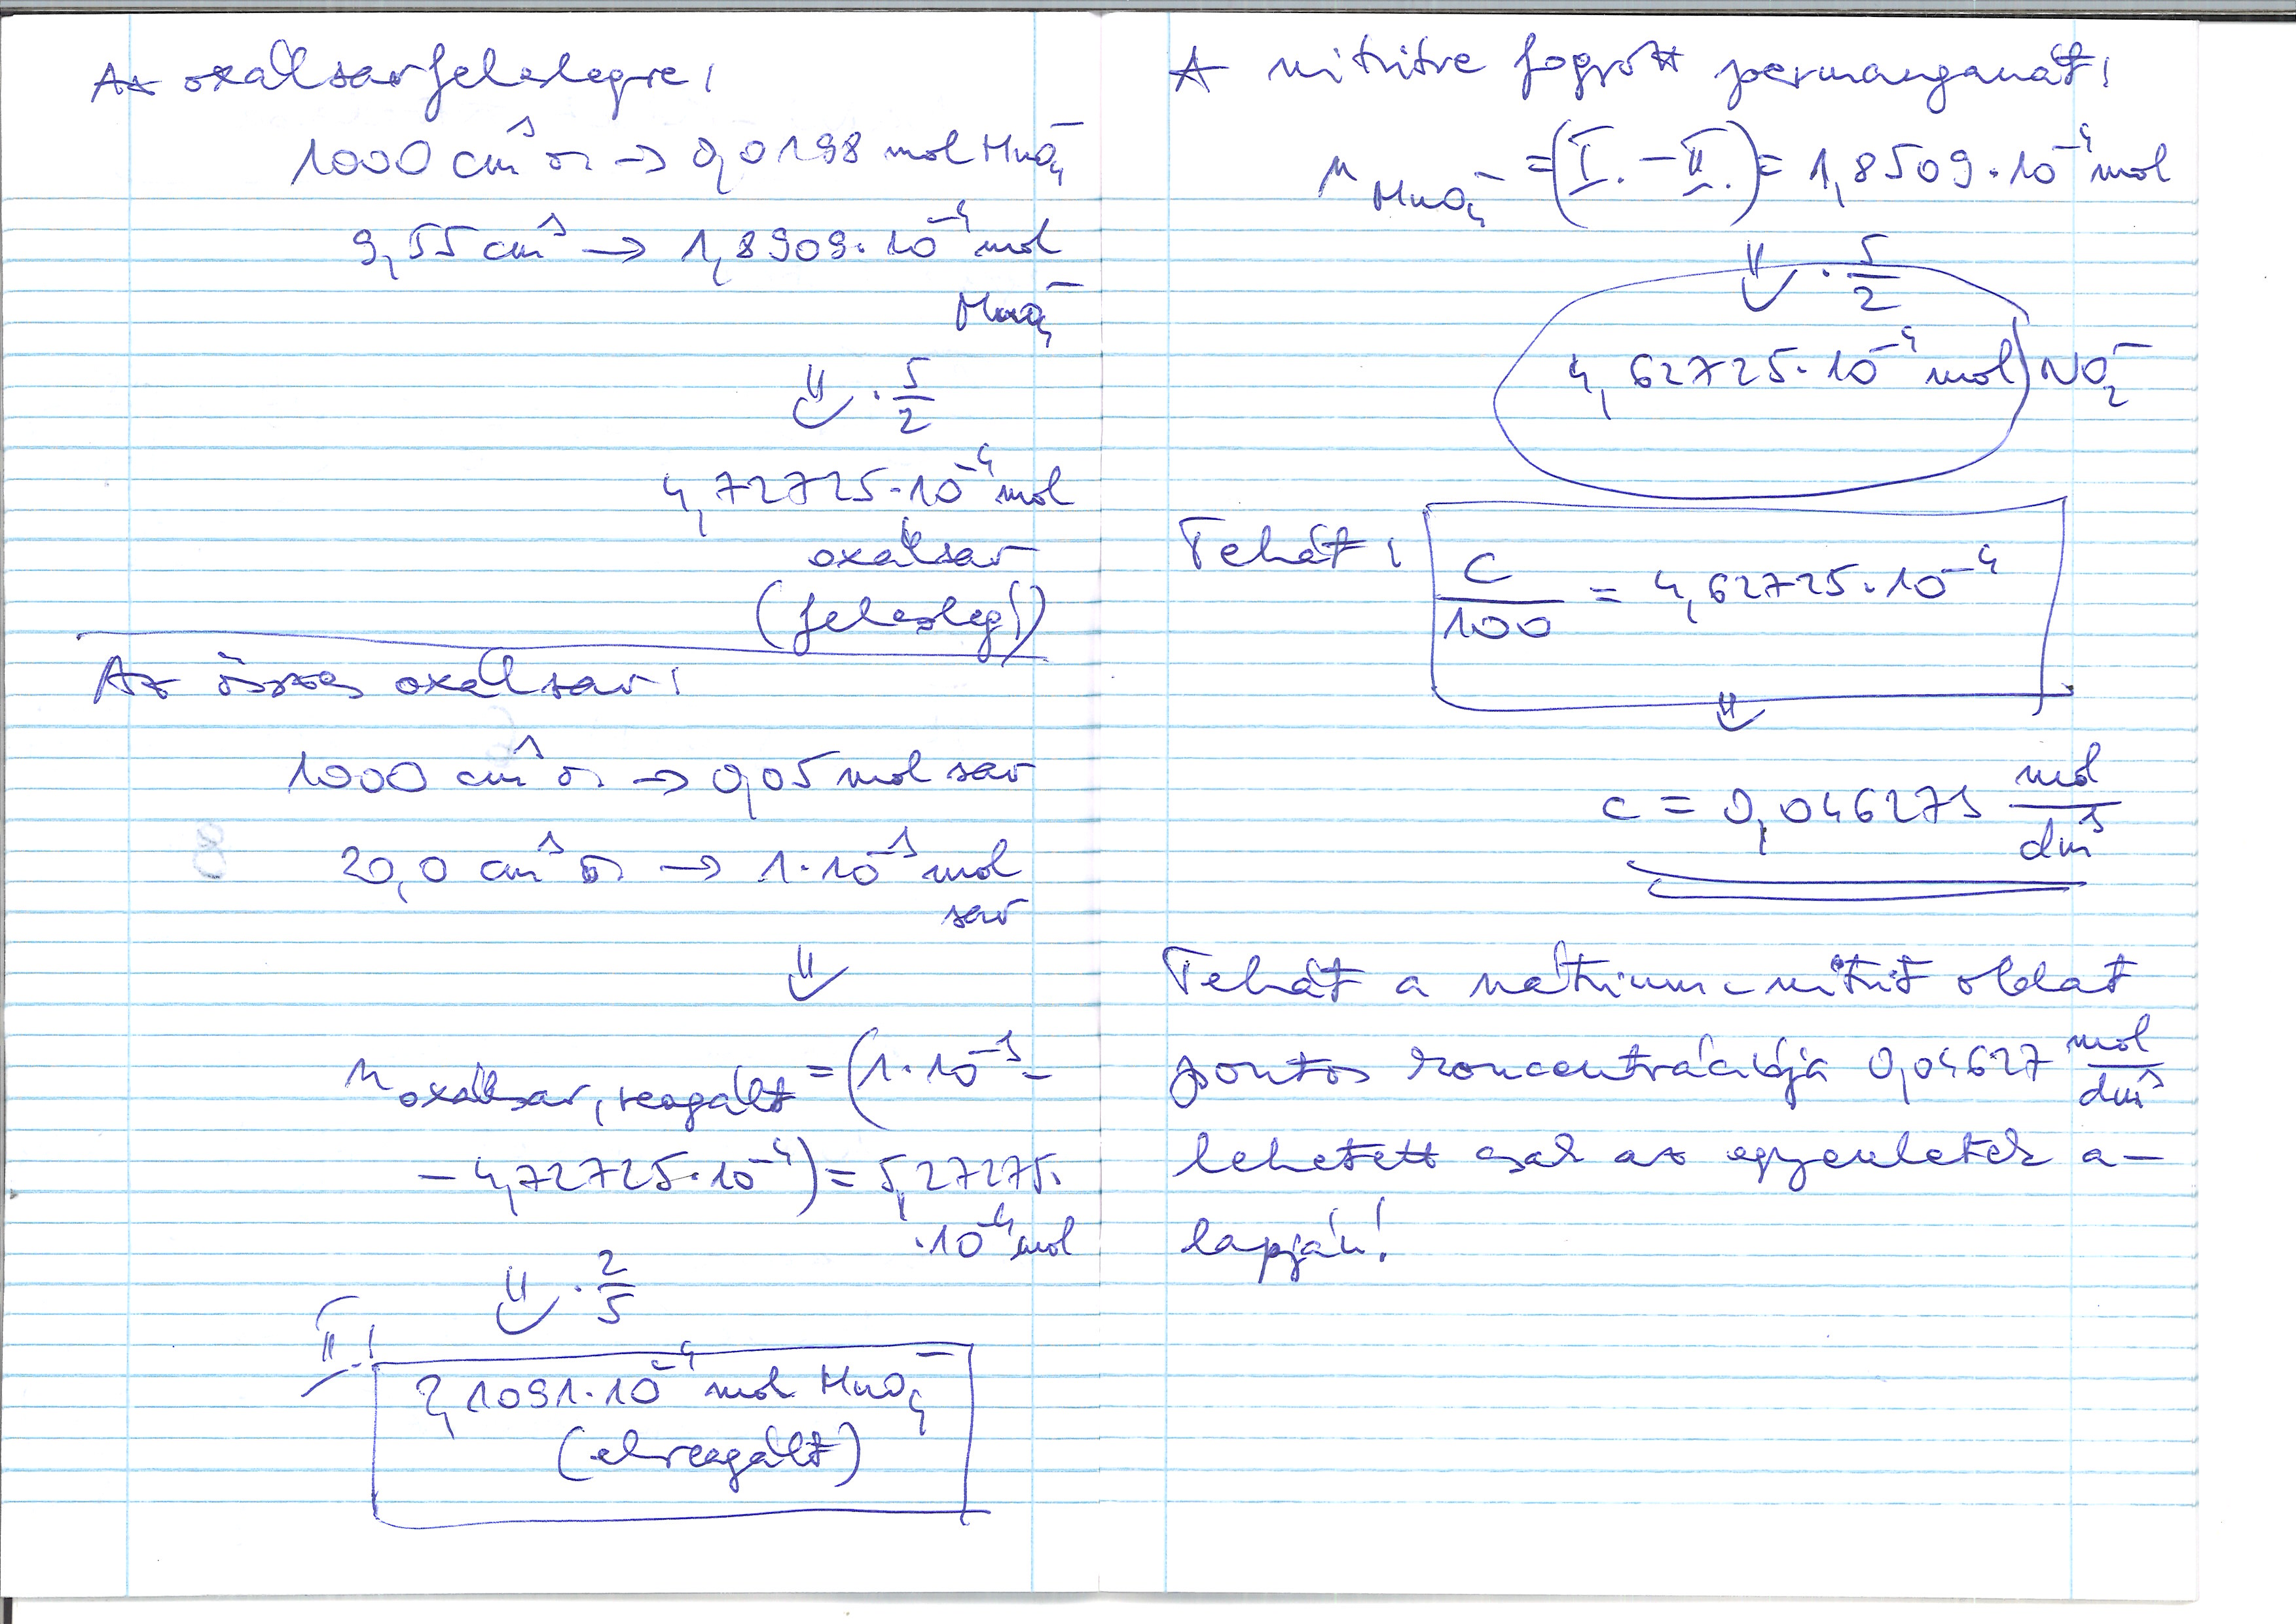 Az oxálsavfeleslegre:
1000 cm³ o. → 0,0198 mol MnO₄⁻
9,55 cm³ → 1,8909·10⁻⁴ mol
MnO₄⁻
⇓ · 5/2
4,72725·10⁻⁴ mol
oxálsav
(felesleg!)
Az összes oxálsav:
1000 cm³ o. → 0,05 mol sav
20,0 cm³ o. → 1·10⁻³ mol
sav
⇓
n oxálsav, reagált = (1·10⁻³ –
– 4,72725·10⁻⁴) = 5,27275·
·10⁻⁴ mol
⇓ · 2/5
II.!
2,1091·10⁻⁴ mol MnO₄⁻
(elreagált)
A nitritre fogyott permanganát:
n MnO₄⁻ = (I. – II.) = 1,8509·10⁻⁴ mol
⇓ · 5/2
4,62725·10⁻⁴ mol NO₂⁻
Tehát: c/100 = 4,62725·10⁻⁴
⇓
c = 0,046273 mol/dm³
Tehát a nátrium-nitrit oldat
pontos koncentrációja 0,04627 mol/dm³
lehetett csak az egyenletek a-
lapján!